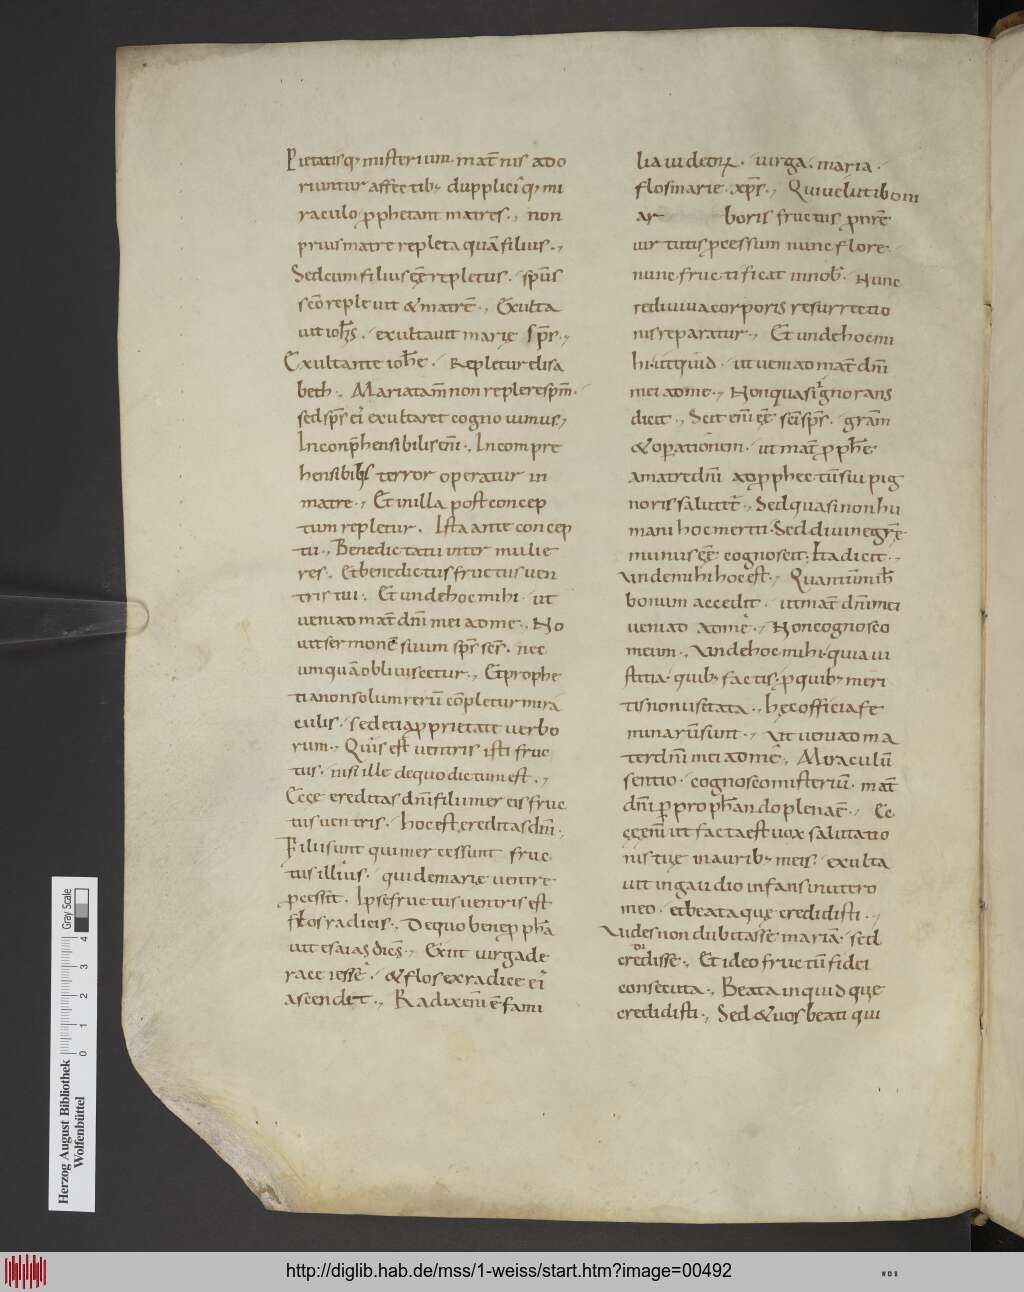 Pietatisq; misterium. mat̄ nis ado
riuntur affectib; dupplici q; mi
raculo ꝓphetant matres., non
prius matre repleta quā filius.,
Sed cum filius eēt repletus. sp̄us
sc̄o repleuit & matrē., Exulta
uit ioh̄s. exultauit marię sp̄s.,
Exultante ioh̄e. Repletur elisa
beth. Mariā tam̄ non repleri sp̄m.
sed sp̄s ei exultaret cognouimus,
Inconp̄hensibilis eni., Incompre
hensibilis terror operatur in
matre., Et in illa post concep
tum repletur. Ista ante concep
tū., Benedicta tu inter mulie
res. Et benedictus fructus uen
tris tui. Et unde hoc mihi. ut
ueniad mat̄ dn̄i mei ad me., No
uit sermonē suum sp̄s sc̄s. nec
umquā obliuiscetur., Et prophe
tia non solum rerū cōpletur mira
culis. sed etiā ꝓprietate uerbo
rum., Quis est uentris isti fruc
tus. nisi ille de quo dictum est.,
Ecce ereditas dn̄i filii mercis fruc
tus uentris. hoc est, ereditas dn̄i.,
Filii sunt qui merces sunt fruc
tus illius. qui de marię uentre
ꝓcessit. Ipse fructus uentris est
flos radicis., De quo bene ꝓph̄a
uit esaias dicēs., Exiit uirga de
race iesse. & flos ex radice ei
ascendet., Radix eni ē fami
lia iudeoꝝ. uirga. maria.
flos marie. xp̄s., Qui uelut boni
ar boris fructus ꝓ nr̄e
uirtutis ꝓcessum nunc flore.
nunc fructificat in nob̄. Nunc
rediuiua corporis resurrectio
nis reparatur., Et unde hoc mi
hi. ut ueniad mat̄ dn̄i
mei ad me., Non quasi ignorans
dicit., Scit eni ēe sc̄i sp̄s. grām
& operationem. ut mat̄ ꝓph̄e
a matre dn̄i ad ꝓphec tū sui pig
noris salutet̄., Sed quasi non hu
mani hoc meriti. Sed diuine gr̄e
munus eē cognoscit; Ita dicit.,
Unde mihi hoc est., Quantum mih̄
bonum accedit. ut mat̄ dn̄i mei
ueniad ad me., Non cognosco
meum., Unde hoc mihi. qua iu
stitia. quib; factis. ꝓ quib; meri
tis non usitata., hęc officia fe
minarū sunt., Ut ueniad ma
ter dn̄i mei ad me., Miraculū
sentio. cognosco misteriū. mat̄
dn̄i ꝑ prophandoplenaē., Ec
ce eni ut facta est uox salutatio
nis tuę in aurib; meis? exulta
uit in gaudio infans in utero
meo. et beata quę credidisti.,
Uides non dubitasse mariā. sed
credisse., Et ideo fructū fidei
consecuta., Beata inquid quę
credidisti., Sed & uos beati qui
Herzog August Bibliothek
Wolfenbüttel
0 1 2 3 4
Gray Scale
http://diglib.hab.de/mss/1-weiss/start.htm?image=00492